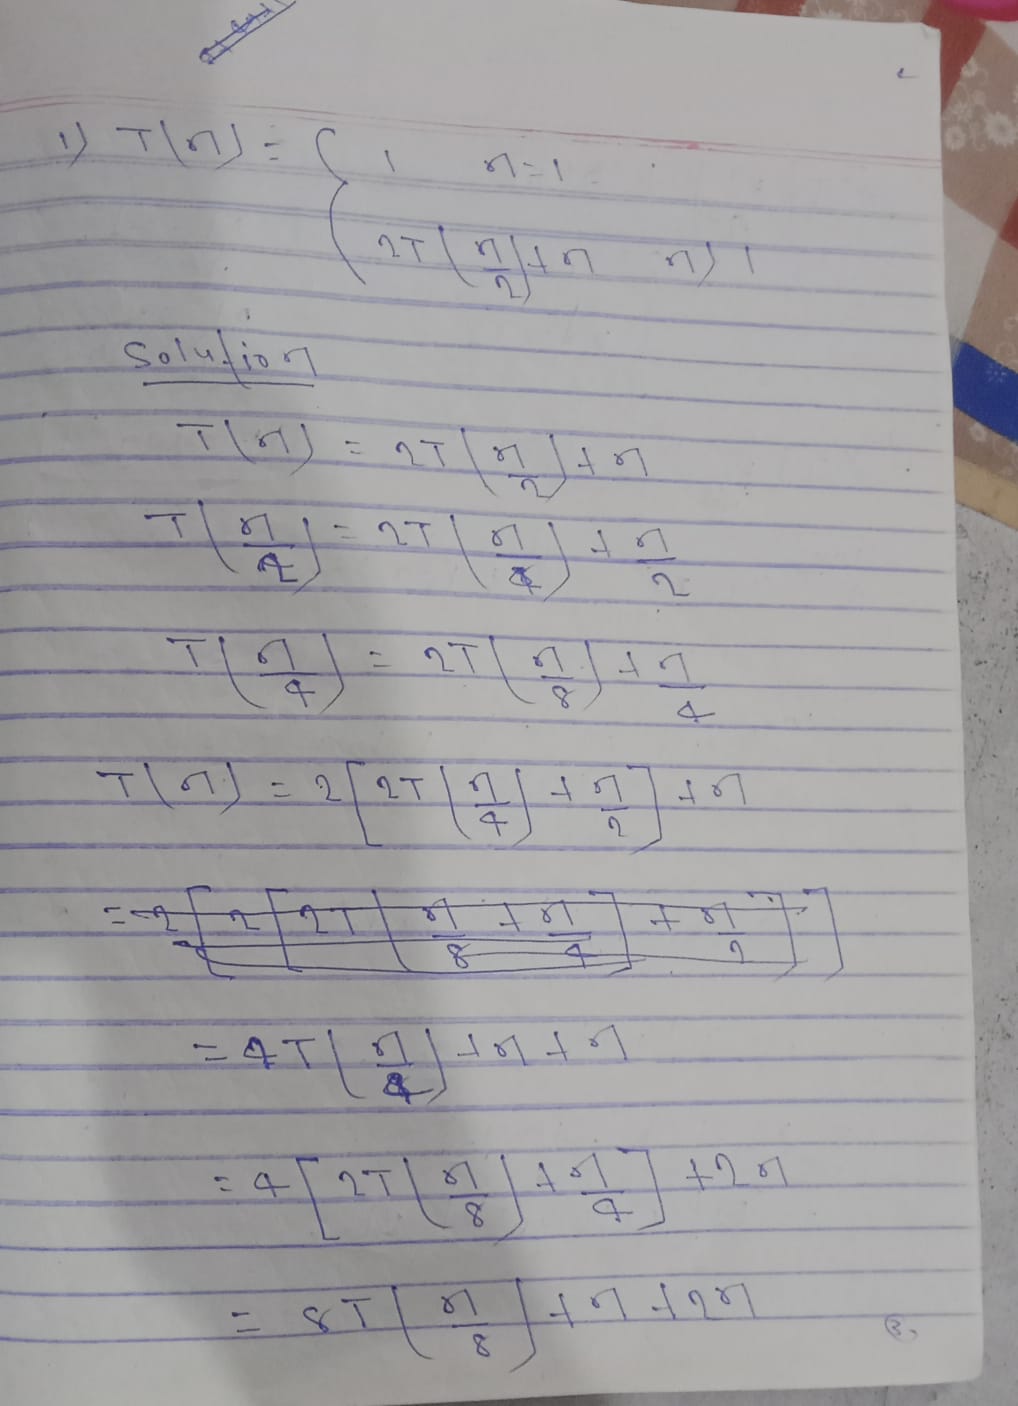 1) T(n) = { 1 n=1
2T(n/2)+n n>1
Solution
T(n) = 2T(n/2)+n
T(n/2) = 2T(n/4)+n/2
T(n/4) = 2T(n/8)+n/4
T(n) = 2[2T(n/4)+n/2]+n
= 2[2[2T(n/8+n/4]+n/2]]
= 4T(n/4)+n+n
= 4[2T(n/8)+n/4]+2n
= 8T(n/8)+n+2n